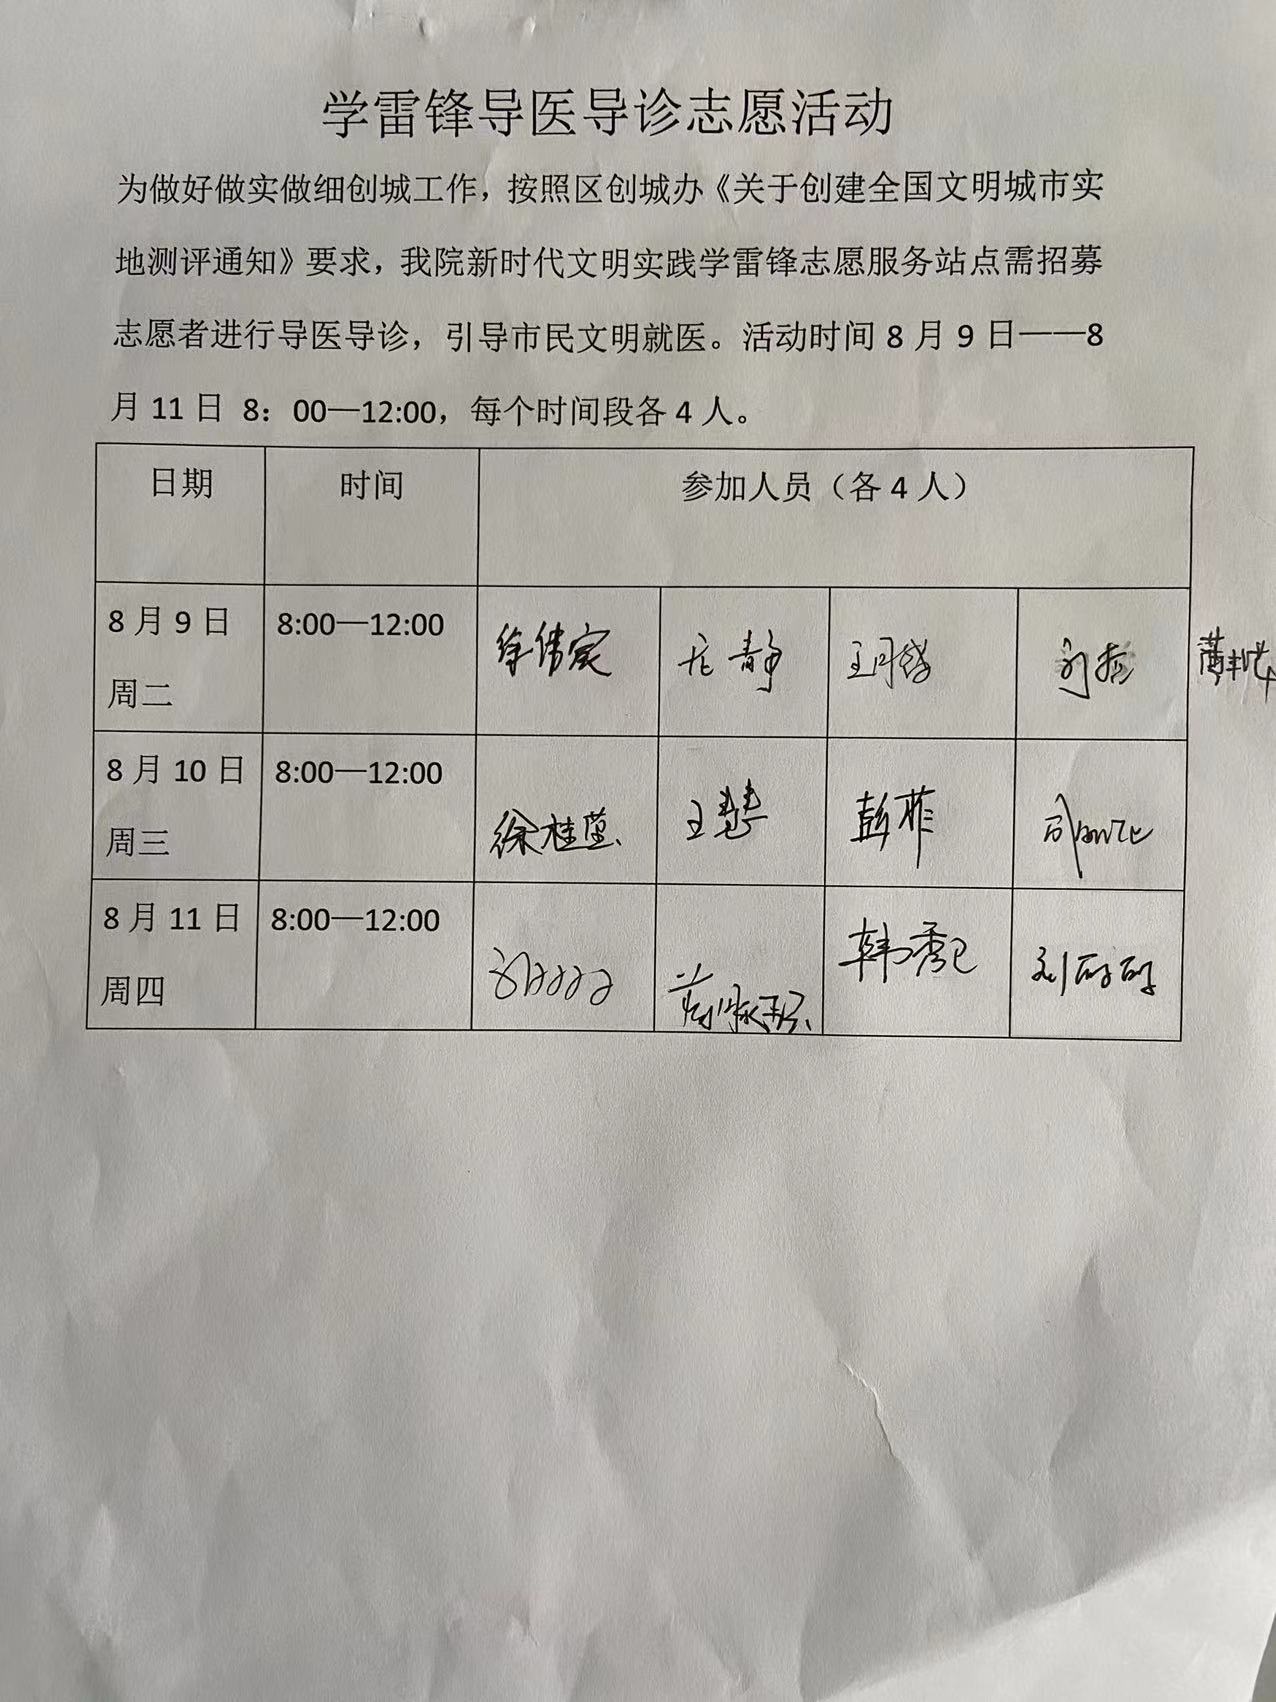 学雷锋导医导诊志愿活动
为做好做实做细创城工作，按照区创城办《关于创建全国文明城市实
地测评通知》要求，我院新时代文明实践学雷锋志愿服务站点需招募
志愿者进行导医导诊，引导市民文明就医。活动时间 8 月 9 日——8
月 11 日 8：00—12:00，每个时间段各 4 人。
日期 时间 参加人员（各 4 人）
8 月 9 日 8:00—12:00
周二
8 月 10 日 8:00—12:00 徐桂莲 王慧 彭菲
周三
8 月 11 日 8:00—12:00
周四